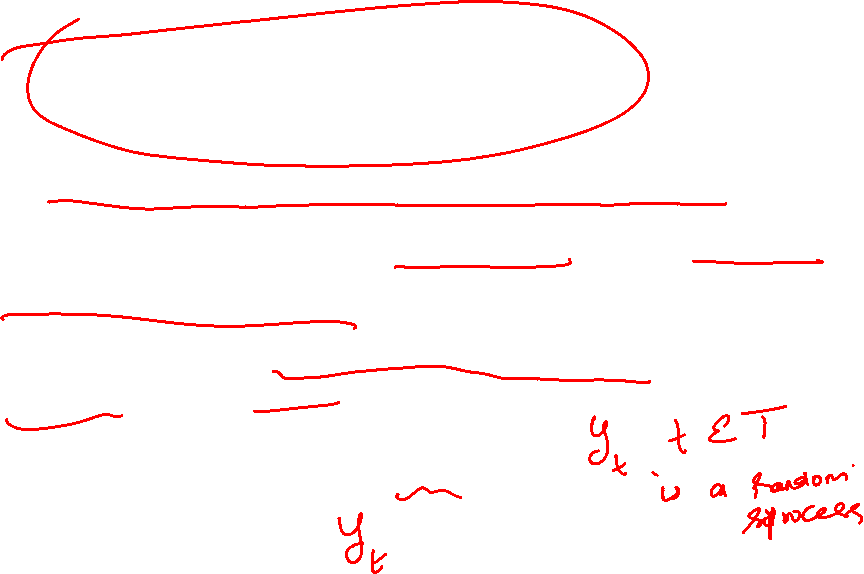 y_t t ∈ T
is a random
process
y_t